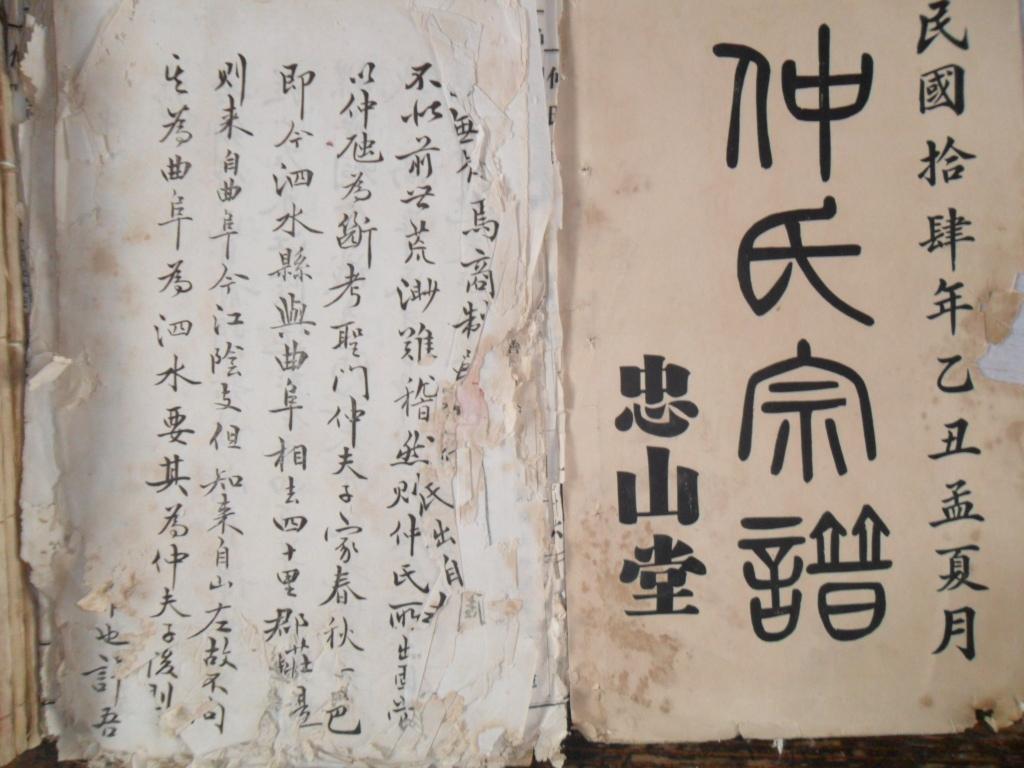 民國拾肆年乙丑孟夏月
仲氏宗譜
忠山堂
馬商制
氏出自
不必前世荒渺難稽然則仲氏所出自當
以仲虺為斷考聖門仲夫子家春秋一邑
即今泗水縣與曲阜相去四十里郡誌是
則来自曲阜今江陰支但知来自山左故不问
其為曲阜為泗水要其為仲夫子後則
也許吾